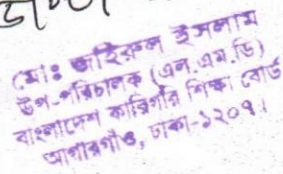 মোঃ জহিরুল ইসলাম
উপ-পরিচালক (এল.এম.ডি)
বাংলাদেশ কারিগরি শিক্ষা বোর্ড
আগারগাঁও, ঢাকা-১২০৭।